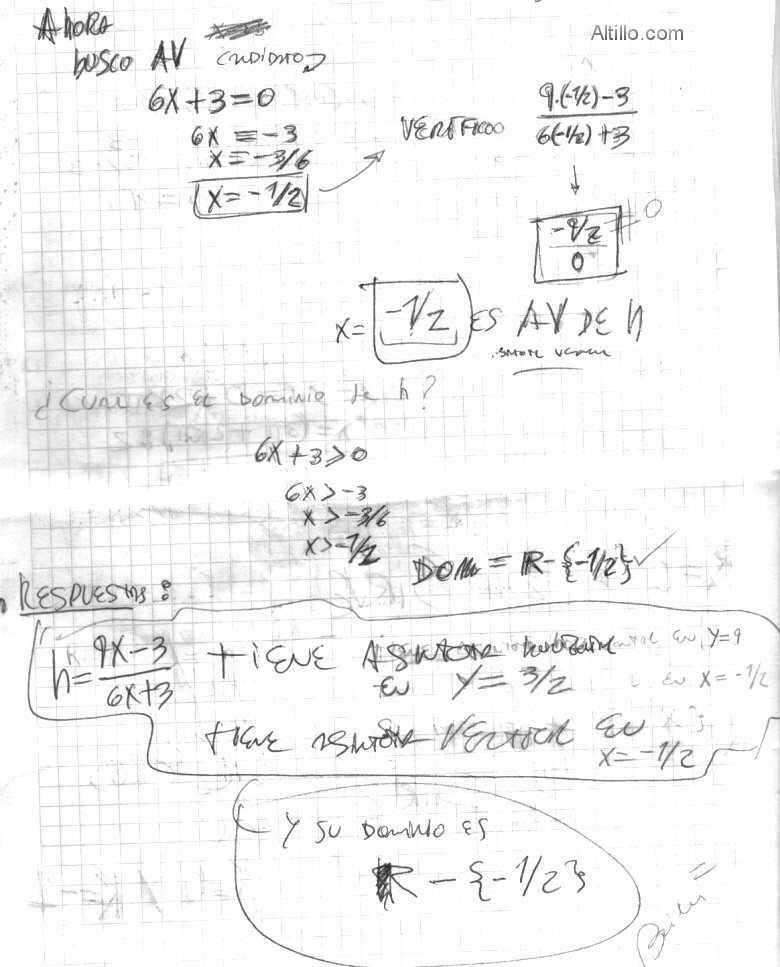 Altillo.com
Ahora
busco AV candidato
6x + 3 = 0
6x = -3
x = -3/6
x = -1/2
VERIFICO
9.(-1/2) - 3
6(-1/2) + 3
-9/2 ≠ 0
0
x = -1/2 ES AV DE h
¿Cual es el Dominio de h?
6x + 3 > 0
6x > -3
x > -3/6
x > -1/2
DOM = R - {-1/2} ✓
RESPUESTAS:
h = 9x-3 / 6x+3 tiene
en y = 3/2
y = 9
en x = -1/2
tiene asintota vertical en
x = -1/2
Y su Dominio es
R - {-1/2}